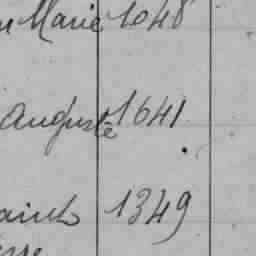 Marie 1048
Auguste 1641
1349